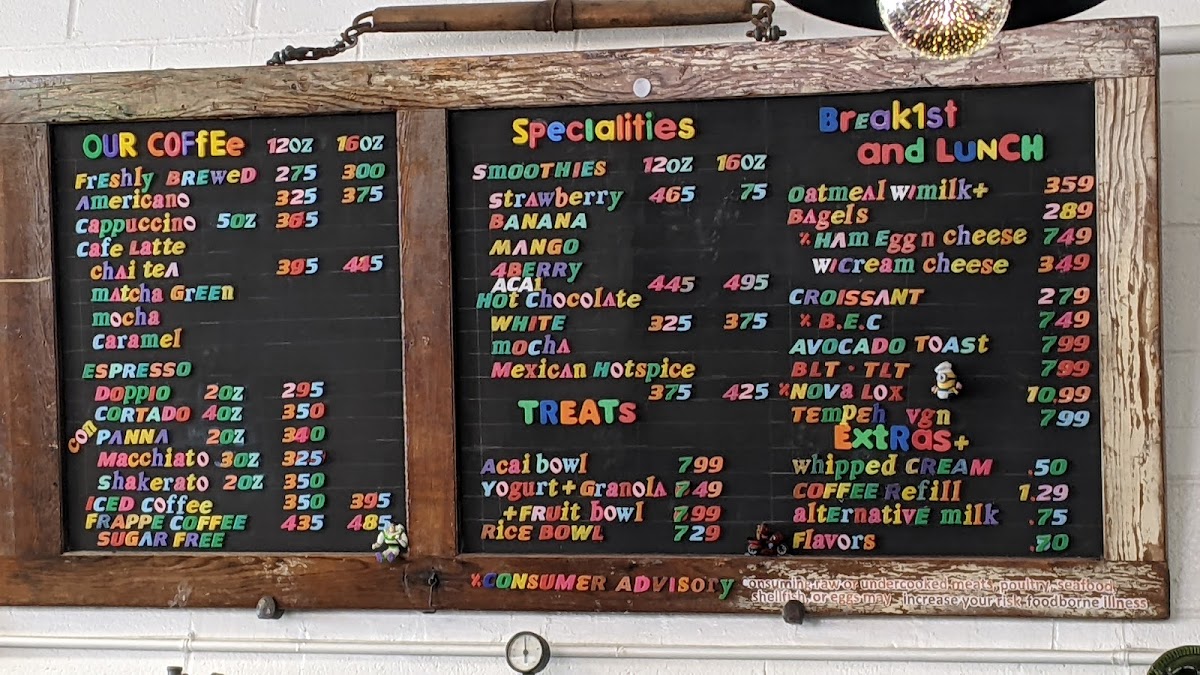 OUR COFFEE 12OZ 16OZ
Freshly BREWED 275 300
Americano 325 375
Cappuccino 5OZ 365
Cafe Latte
chai tea 395 445
matcha GREEN
mocha
caramel
ESPRESSO
DOPPIO 2OZ 295
CORTADO 4OZ 350
con PANNA 2OZ 340
Macchiato 3OZ 325
shakerato 2OZ 350
ICED coffee 350 395
FRAPPE COFFEE 435 485
SUGAR FREE
Specialities
SMOOTHIES 12OZ 16OZ
strawberry 465 75
BANANA
MANGO
4BERRY
ACAi 445 495
HOT Chocolate
WHITE 325 375
mocha
Mexican Hotspice
375 425
TREATS
Acai bowl 799
Yogurt+Granola 749
+FRUIT bowl 799
RICE BOWL 729
Break1st
and LUNCH
Oatmeal w/milk+ 359
BAgels 289
% HAm Egg n cheese 749
W/Cream cheese 349
CROISSANT 279
% B.E.C 749
AVOCADO TOAST 799
BLT · TLT 799
%NOVA LOX 10.99
TEMPEH vgn 799
ExtRas+
whipped CREAM .50
COFFEE Refill 1.29
alternative milk .75
Flavors .70
%CONSUMER ADVISORY consuming raw or undercooked meats, poultry, seafood,
shellfish, or eggs may increase your risk foodborne illness